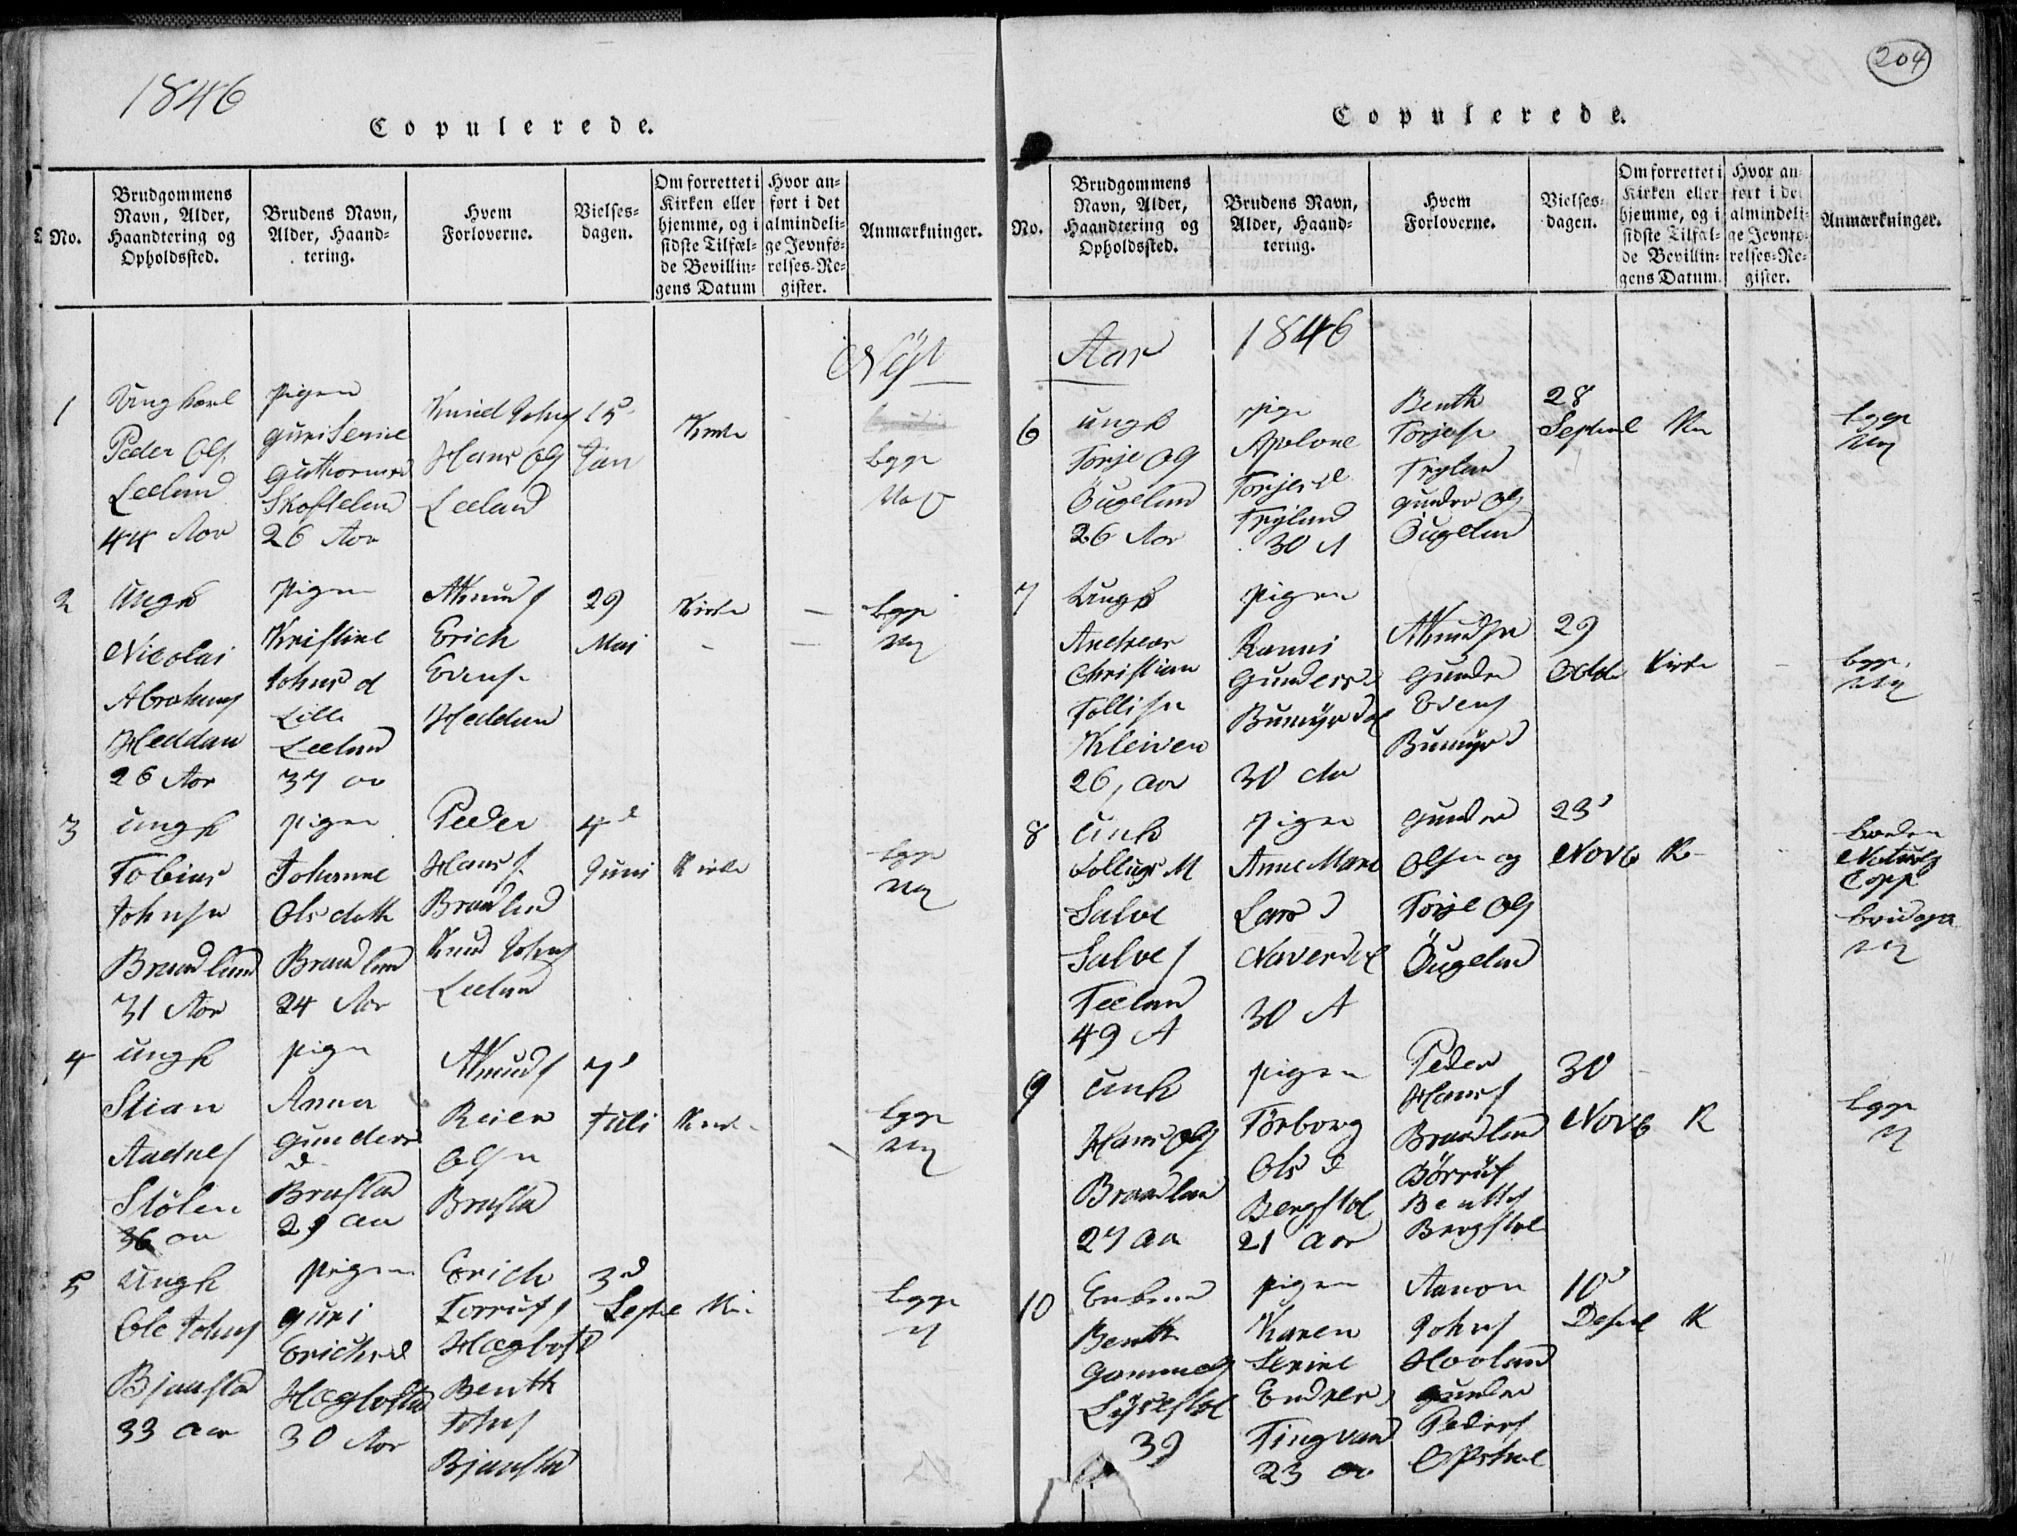 1846
Copulerede.
No.
Brudgommens
Navn, Alder,
Haandtering og
Opholdssted.
Brudens Navn,
Alder, Haand=
tering.
Hvem
Forloverne.
Vielses=
dagen.
Om forrettet i
Kirken eller
hjemme, og i
sidste Tilfæl=
de Bevillin=
gens Datum
Hvor an=
ført i det
almindeli=
ge Jevnfø=
relses=Re=
gister.
Anmærkninger.
1
Ungkarl
Peder Ols
Leeland
44 Aar
Pigen
Guri Serine
Guthormsd
26 Aar
Knud Johns
Hans Ols
Leeland
15
Jan
Kirke
begge
2
Ungk
Nicolai
Abrahams
Heddan
26 Aar
Pigen
Kristine
Johns d
Lille
Leeland
37 aa
AKnuds
Erich
Evens
Heddan
29
Mai
Kirke
begge
3
Ungk
Tobias
Johnsn
Braadland
31 Aar
pigen
Johanne
Olsdatt
Braadland
24 Aar
Peder
Hans s
Braadland
Knud Johns
Leeland
4d
Juni
Kirke
begge
4
Ungk
Stian
Aadnes
Stölen
36 aa
pigen
Anna
Gunders
d
Brastad
29 aa
AKnuds
Reier
Olsn
Brastad
7d
Juli
Kirke
begge
5
Ungk
Ole Johns
Bjaastad
33 aar
pigen
Guri
Erichsd
Hægbostad
30 Aar
Erich
Torrufs
Hægbost
Benth
Johns
Bjaastad
3d
Septbr
begge
204
Copulerede.
No.
Brudgommens
Navn, Alder,
Haandtering og
Opholdssted.
Brudens Navn,
Alder, Haand=
tering.
Hvem
Forloverne.
Vielses=
dagen.
Om forrettet i
Kirken eller
hjemme, og i
sidste Tilfæl=
de Bevillin=
gens Datum.
Hvor an=
ført i det
almindeli=
ge Jevnfø=
relses=Re=
gister.
Anmærkninger.
Aar 1846
6
Ungk
Torje Ols
Öugeland
26 Aar
pige
Apelone
Torjesd
Tryland
30 A
Benth
Torjesn
Tryland
Gunder Ols
Öugeland
28
Septbr
begge
7
Ungk
Andreas
Christian
Tollisn
Kleiven
26, aar
pigen
Ranni
Gundersd
30 aa
AKnudsn
Gunder
Evens
29
Octb
Kirke
begge
8
Unk
Salve
Salves
Teeland
49 A
pigen
Anne Mare
Lars d
30 A
Gunder
Olsn og
Torje Ols
Öugeland
23d
Novb
K
Naturlig
Copp
9
Unk
Hans Ols
Braadland
27 aa
pigen
Törborg
Ols d
Bergstöl
21 aar
Peder
Hans s
Braadland
Börruf
Benths
Bergstöl
30
Novb
K
begge
10
Benth
39
pigen
Karen
Serine
Endres
Tingvad
23 aa
Aanon
Johns
Gunder
Peders
10d
K